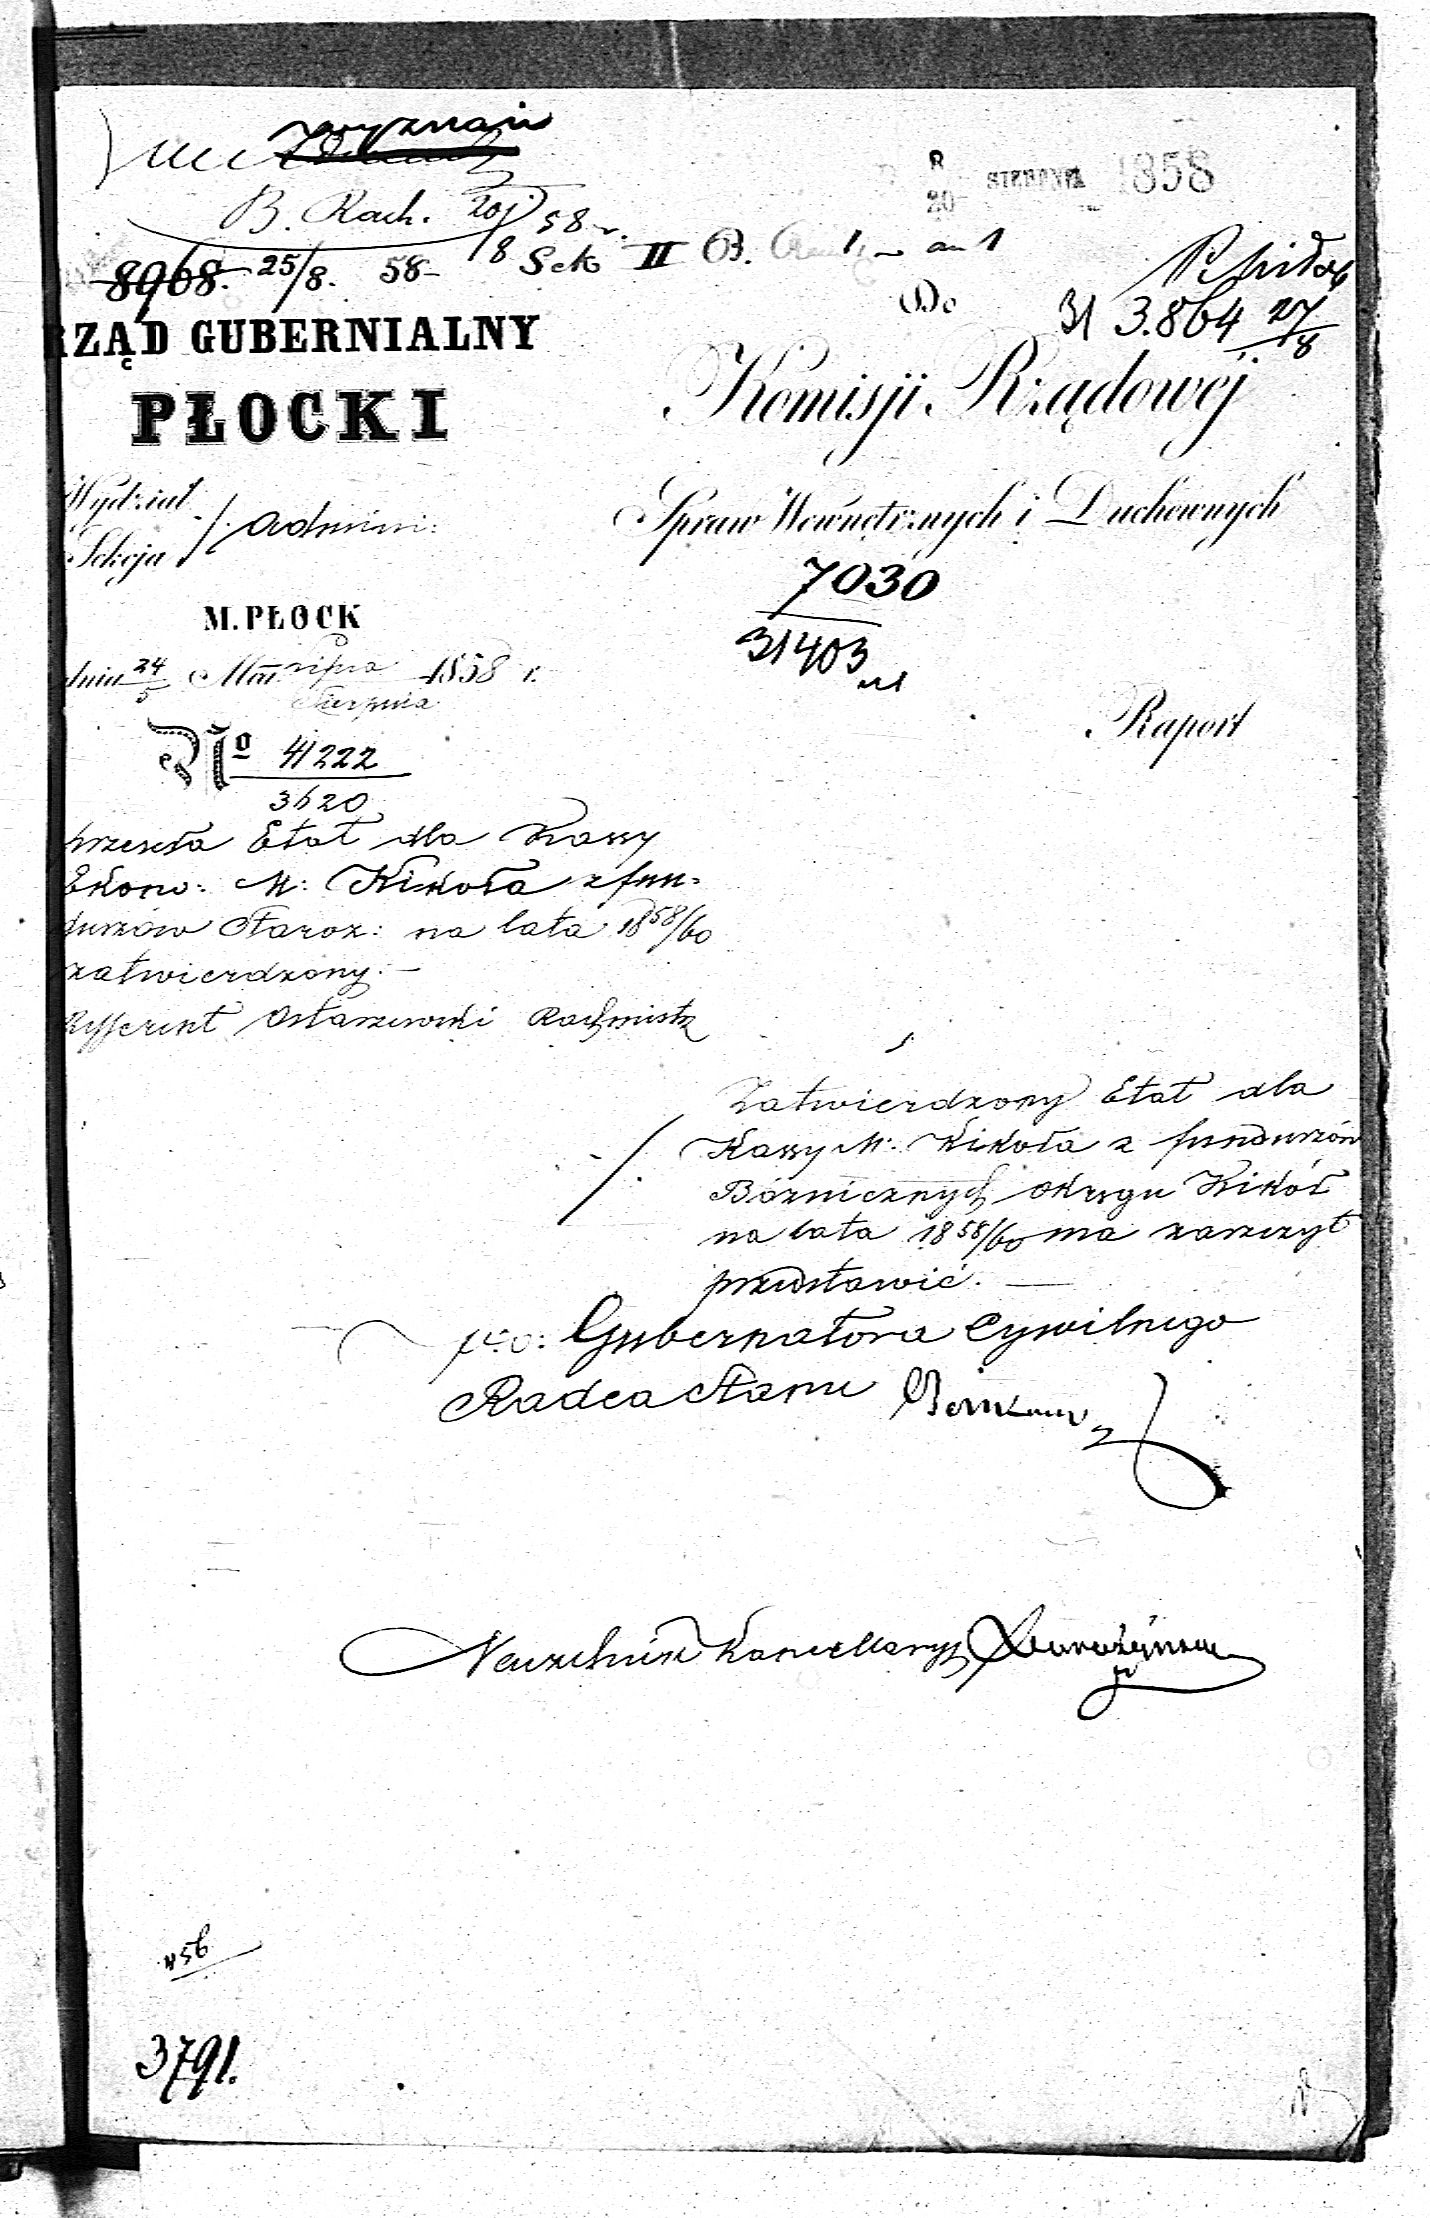 wyznań
B. Rach. 20/8 58 r.
8 20 SIERPNIA 1858
8968. 25/8. 58 Sek II B.
Do
31 3.864 27/8
RZĄD GUBERNIALNY
PŁOCKI
Komisji Rządowéj
Wydział
Sekcja
Admini:
Spraw Wewnętrznych i Duchownych
7030
31403
M. PŁOCK
dnia 24/5 Lipca Sierpnia 1858 r.
Raport
No 41222
3620
przesyła Etat dla Kassy
Ekono: M: Kikoła z fun-
duszów Staroz: na lata 1858/60
zatwierdzony. –
Refferent Ostaszewski Rachmistrz
Zatwierdzony Etat dla
Kassy M: Kikoła z funduszów
Bóżnicznych Okręgu Kikół
na lata 1858/60 ma zaszczyt
przedstawić. —
p: o: Gubernatora Cywilnego
Radca Stanu
Naczelnik Kancellaryi
456
3791.